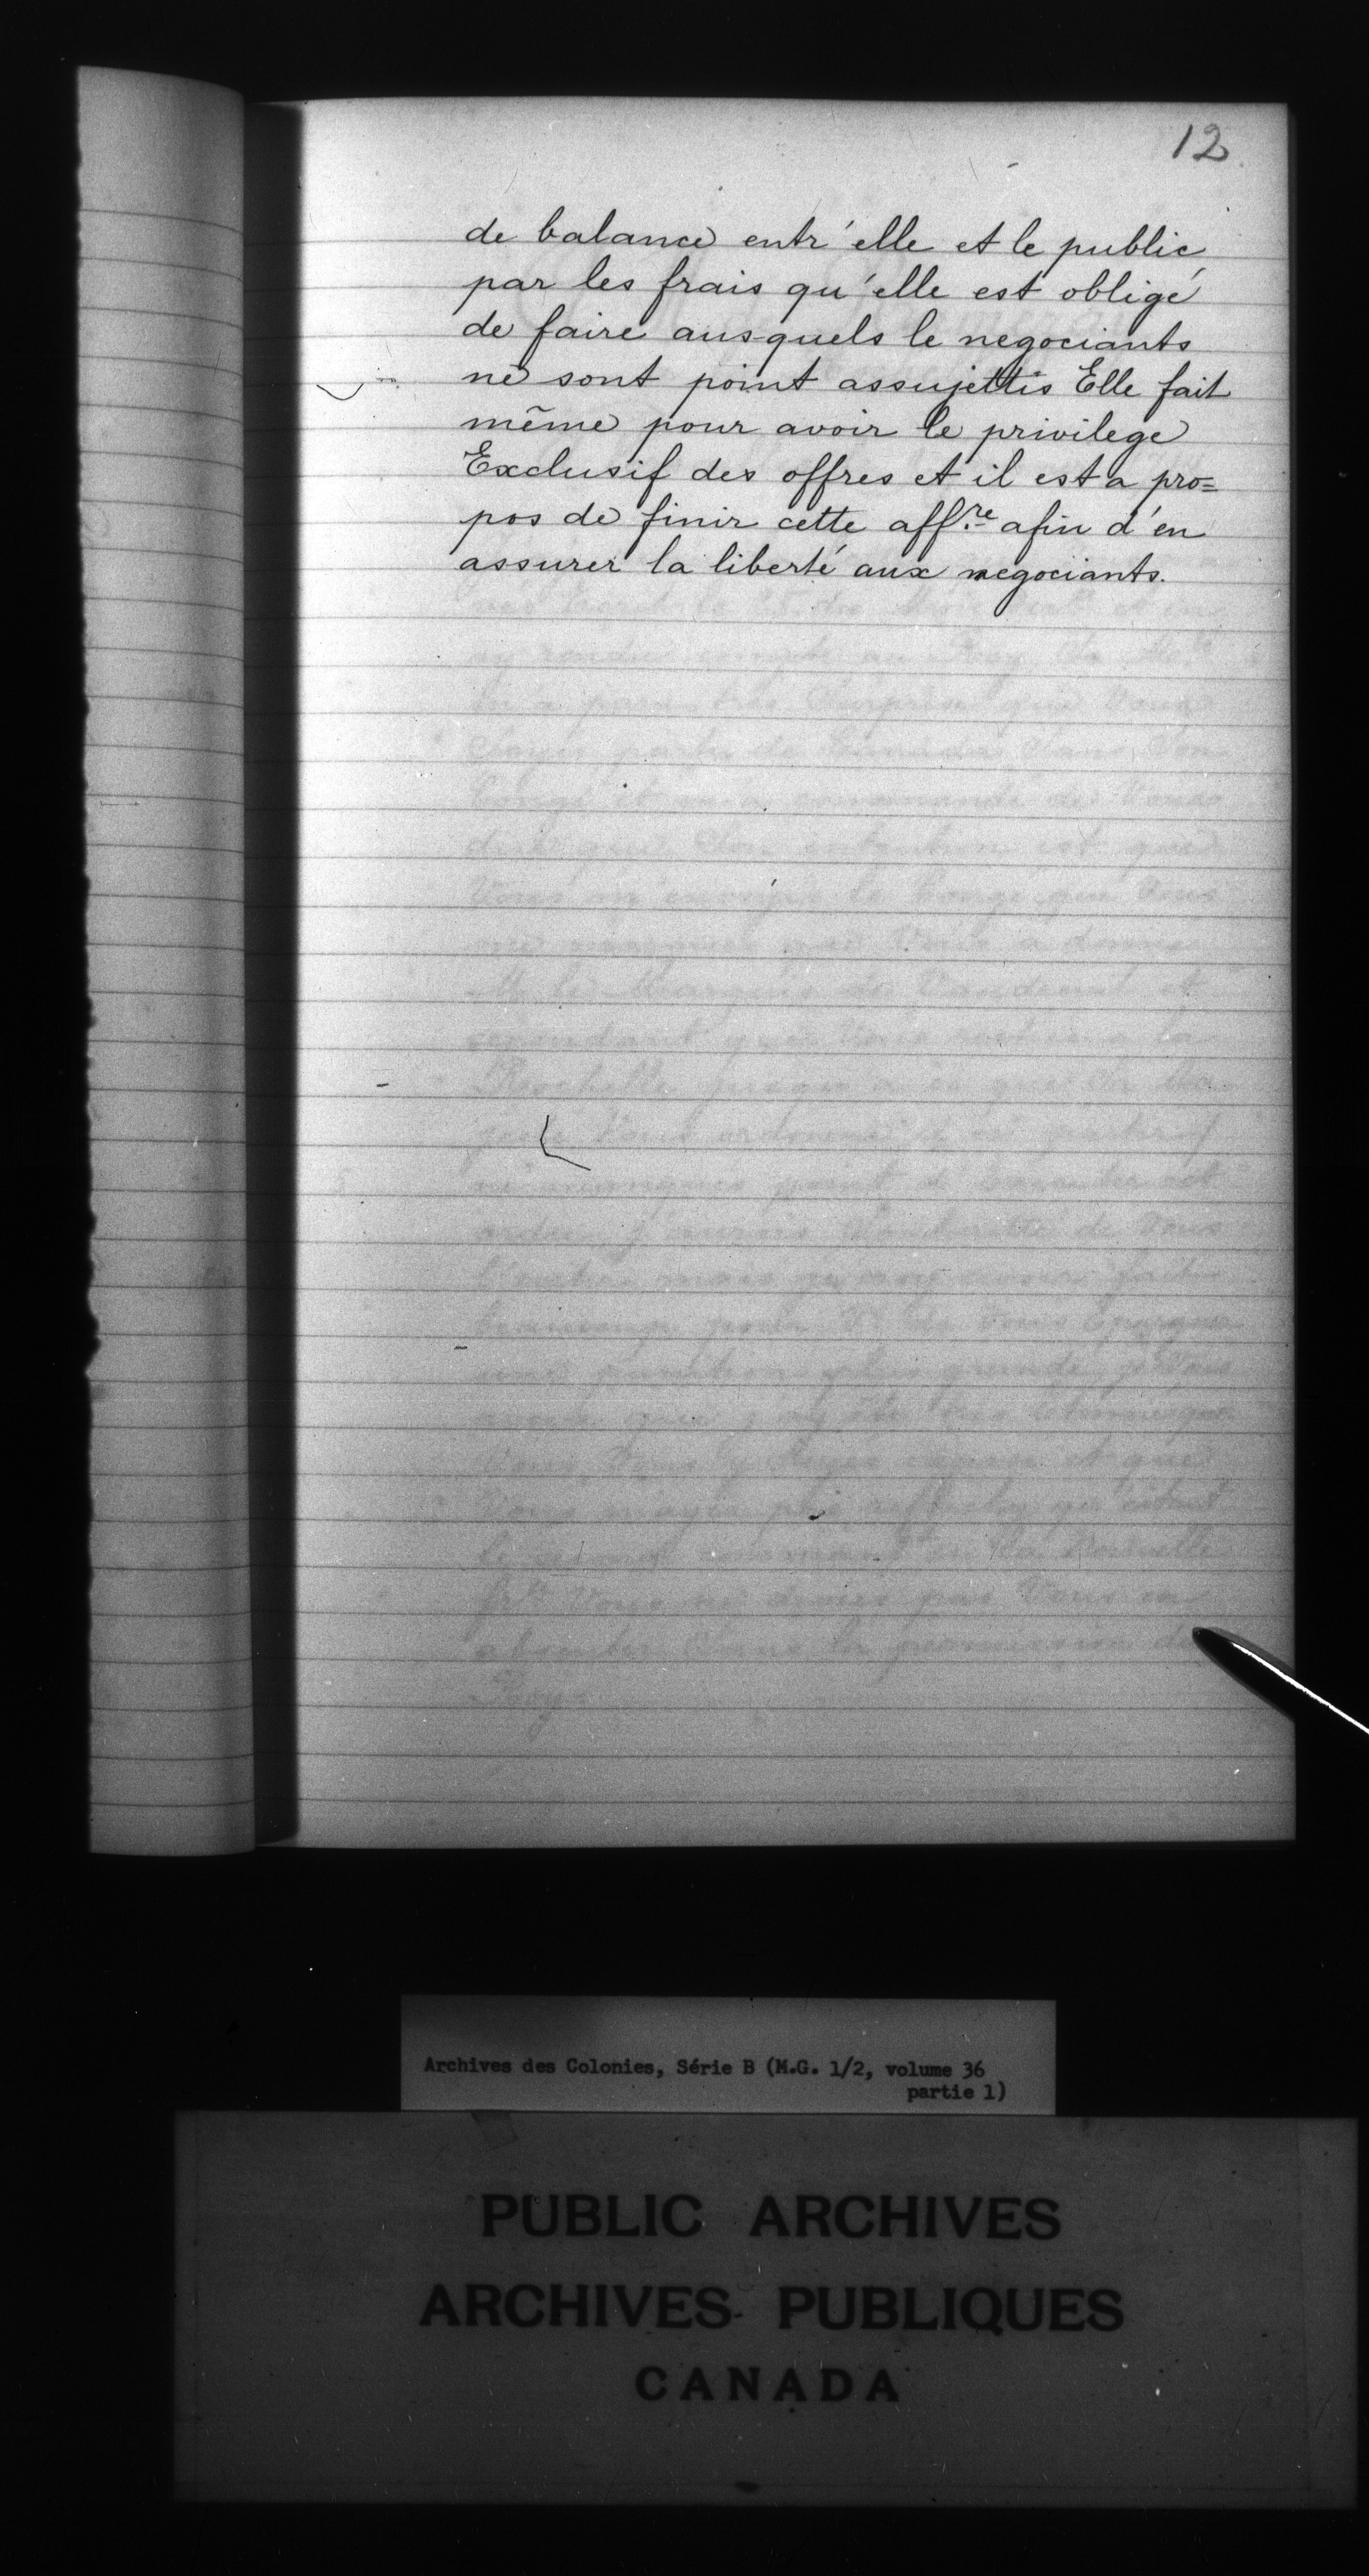 12
de balance entr'elle et le public
par les frais qu'elle est obligé
de faire ausquels le negociants
ne sont point assujettis Elle fait
même pour avoir le privilege
Exclusif des offres et il est a pro=
pos de finir cette aff.re afin d'en
assurer la liberté aux negociants.
Archives des Colonies, Série B (M.G. 1/2, volume 36
partie 1)
PUBLIC ARCHIVES
ARCHIVES PUBLIQUES
CANADA